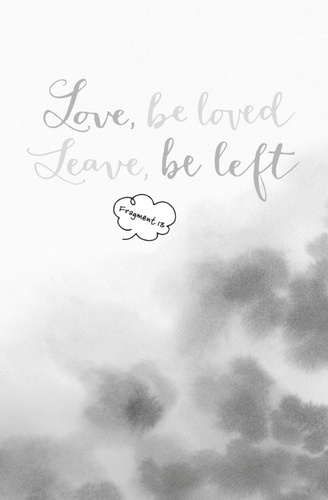 Love, be loved
Leave, be left
Fragment 13